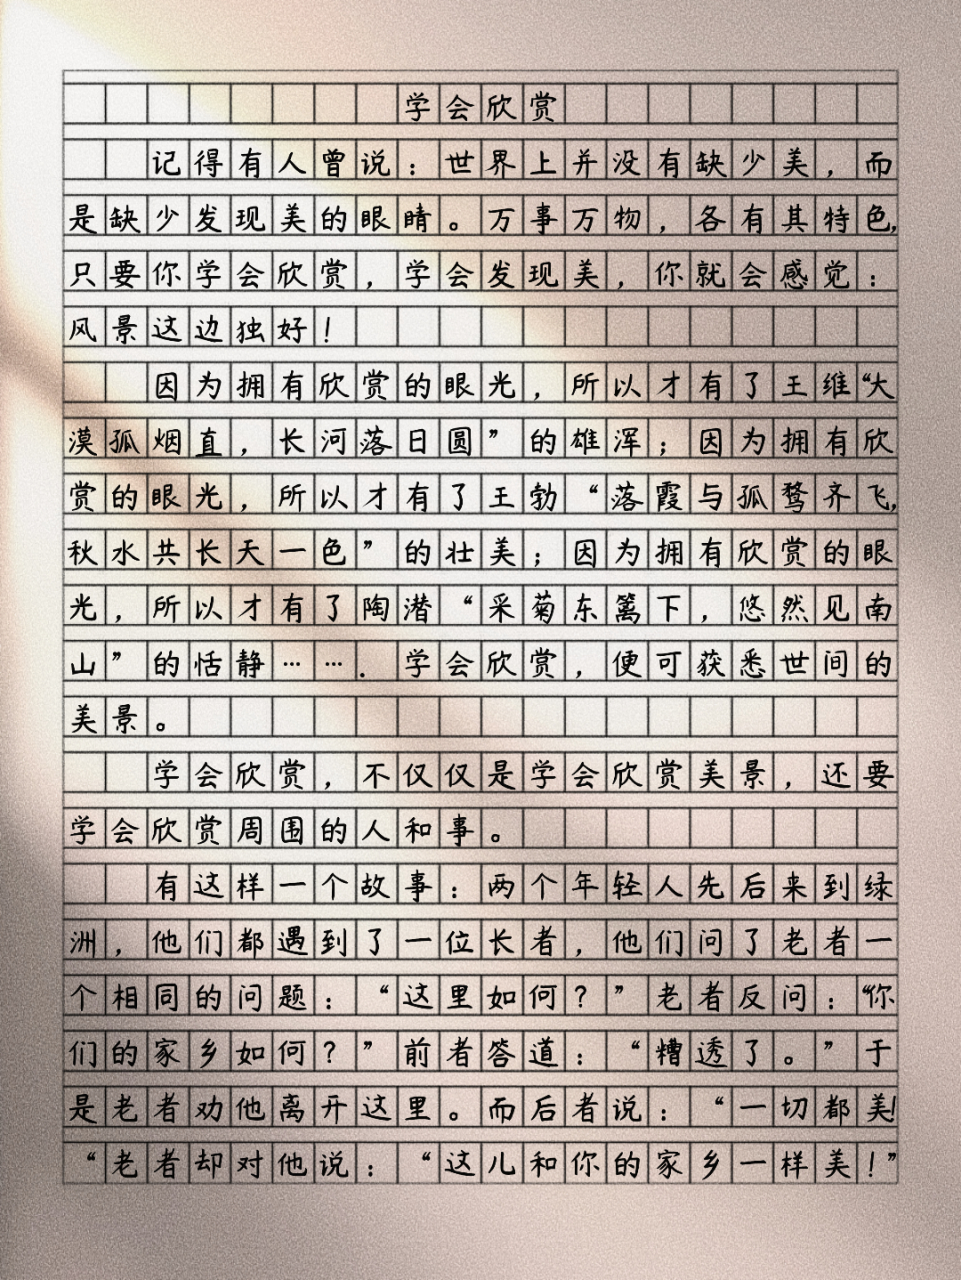 学会欣赏
记得有人曾说：世界上并没有缺少美，而
是缺少发现美的眼睛。万事万物，各有其特色，
只要你学会欣赏，学会发现美，你就会感觉：
风景这边独好！
因为拥有欣赏的眼光，所以才有了王维“大
漠孤烟直，长河落日圆”的雄浑；因为拥有欣
赏的眼光，所以才有了王勃“落霞与孤鹜齐飞，
秋水共长天一色”的壮美；因为拥有欣赏的眼
光，所以才有了陶潜“采菊东篱下，悠然见南
山”的恬静……．学会欣赏，便可获悉世间的
美景。
学会欣赏，不仅仅是学会欣赏美景，还要
学会欣赏周围的人和事。
有这样一个故事：两个年轻人先后来到绿
洲，他们都遇到了一位长者，他们问了老者一
个相同的问题：“这里如何？”老者反问：“你
们的家乡如何？”前者答道：“糟透了。”于
是老者劝他离开这里。而后者说：“一切都美！
“老者却对他说：“这儿和你的家乡一样美！”